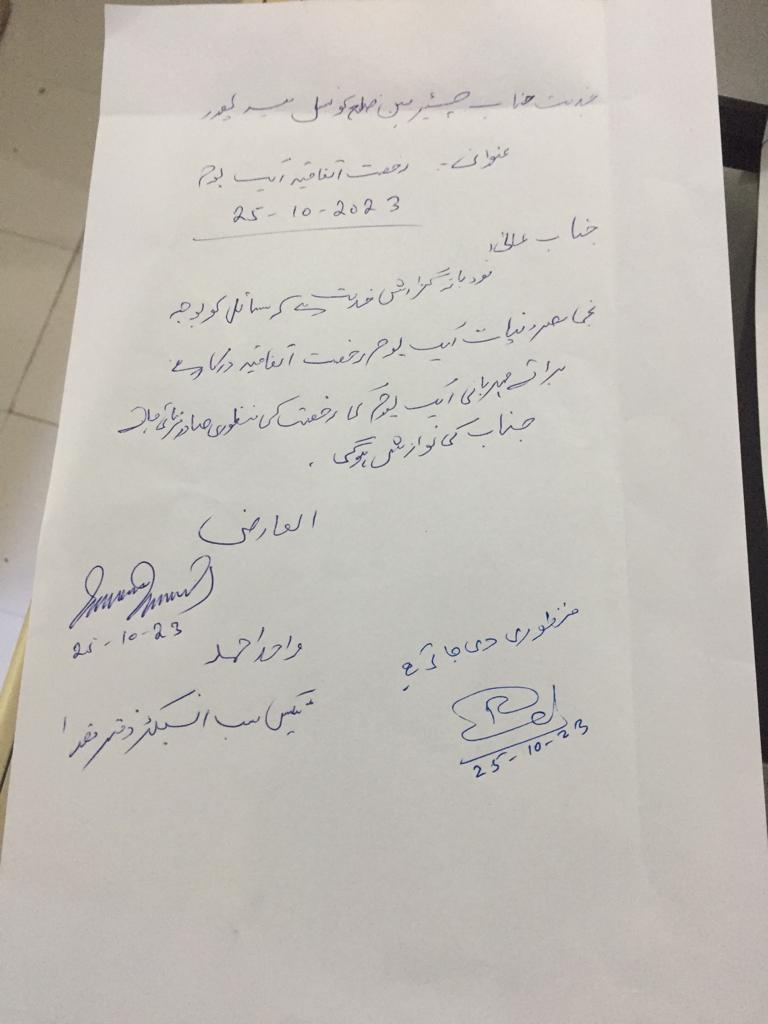 بخدمت جناب چیئرمین ضلع کونسل میرپور
عنوان:- رخصت اتفاقیہ ایک یوم
25-10-2023
جناب عالی!
مودبانہ گزارش خدمت ہے کہ سائل کو بوجہ
نجی مصروفیات ایک یوم رخصت اتفاقیہ درکار ہے
برائے مہربانی ایک یوم کی رخصت کی منظوری صادر فرمائی جائے
جناب کی نوازش ہوگی۔
العارض
25-10-23
واحد احمد
ٹیکس سب انسپکٹر دفتر ھذا
منظوری دی جاتی ہے
25-10-23